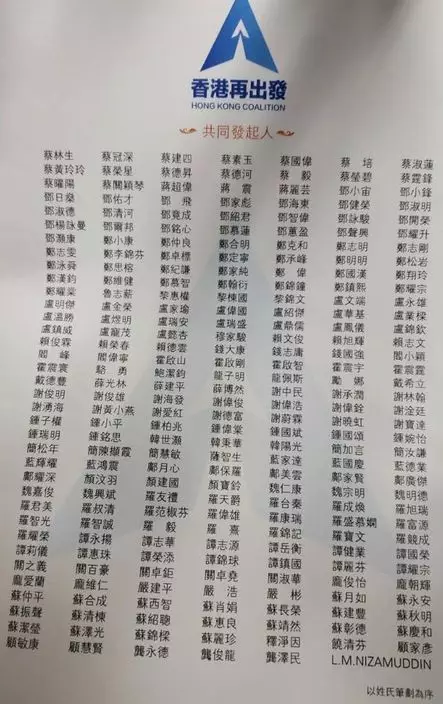 香港再出發
HONG KONG COALITION
共同發起人
蔡林生 蔡冠深 蔡建四 蔡素玉 蔡國偉 蔡 培 蔡淑蓮
蔡黃玲玲 蔡榮星 蔡德昇 蔡德河 蔡 毅 蔡瑩碧 蔡霆鋒
蔡曜陽 蔡關穎琴 蔣超偉 蔣 震 蔣麗芸 鄧小宙 鄧小鋒
鄧日燊 鄧佑才 鄧 飛 鄧家彪 鄧海東 鄧健榮 鄧淑明
鄧淑德 鄧清河 鄧竟成 鄧紹君 鄧智偉 鄧詠駿 鄧開榮
鄧楊詠曼 鄧爾邦 鄧銘心 鄧慕蓮 鄧蕙盈 鄧聲興 鄧耀升
鄧灝康 鄭小康 鄭仲良 鄭合明 鄭克和 鄭志明 鄭志剛
鄭志雯 鄭李錦芬 鄭卓標 鄭定寧 鄭承峰 鄭明明 鄭松岩
鄭泳舜 鄭思榕 鄭紀謙 鄭家純 鄭 偉 鄭國漢 鄭翔玲
鄭漢鈞 鄭維健 鄭慕智 鄭翰衍 鄭錦鐘 鄭鎮熙 鄭耀宗
鄭耀棠 魯志薪 黎惠權 黎棟國 黎錦文 盧文端 盧永雄
盧明傑 盧金榮 盧家瑜 盧偉國 盧紹傑 盧華基 盧業樑
盧溫勝 盧煜明 盧瑞安 盧瑞盛 盧鼎儒 盧鳳儀 盧錦欽
盧鎮威 盧寵茂 盧懿杏 穆家駿 賴文俊 賴旭輝 賴志文
賴俊霖 賴榮春 賴德雲 錢大康 錢志庸 錢國強 閻小穎
閻 峰 閻偉寧 霍啟山 霍啟剛 霍啟文 霍震宇 霍震霆
霍震寰 駱 勇 鮑潔鈞 龍子明 龍佩斯 勵 娜 戴希立
戴德豐 薛光林 薛建平 薛博然 謝中民 謝承潤 謝林翰
謝俊明 謝俊雄 謝海發 謝偉俊 謝偉浩 謝偉銓 謝淦廷
謝湧海 謝黃小燕 謝愛紅 謝德富 謝蔚霖 謝曉虹 謝寶達
鍾子權 鍾小平 鍾柏兆 鍾偉棠 鍾國斌 鍾國頌 鍾婉怡
鍾瑞明 鍾銘思 韓世灝 韓秉華 韓陽光 簡加言 簡汝謙
簡松年 簡陳擷霞 簡慧敏 薩智生 藍家達 藍國慶 藍德業
藍輝耀 藍鴻震 鄺月心 鄺保羅 鄺美雲 鄺家賢 鄺廣傑
鄺耀深 顏汶羽 顏建國 顏寶鈴 魏仁康 魏宗明 魏明德
魏嘉俊 魏興斌 羅友禮 羅天爵 羅台秦 羅成煥 羅旭瑞
羅君美 羅叔清 羅范椒芬 羅偉雄 羅康瑞 羅盛慕嫻 羅富源
羅智光 羅智誠 羅 毅 羅 熹 羅錦記 羅寶文 羅競成
羅耀榮 譚永揚 譚志華 譚志源 譚岳衡 譚健業 譚國榮
譚莉儀 譚惠珠 譚榮添 譚錦球 譚鎮國 譚麗芬 譚耀宗
關之義 關百豪 關卓鉅 關卓堯 關淑華 龐俊怡 龐朝輝
龐愛蘭 龐維仁 嚴建平 嚴 浩 嚴 彬 蘇月如 蘇永安
蘇仲平 蘇合成 蘇西智 蘇肖娟 蘇長榮 蘇建豐 蘇秋明
蘇振聲 蘇清棟 蘇紹聰 蘇惠良 蘇靖然 蘇彰德 蘇慶和
蘇潔瑩 蘇澤光 蘇錦樑 蘇麗珍 釋淨因 饒清芬 顧家彥
顧敏康 顧慧賢 龔永德 龔俊龍 龔澤民 L.M.NIZAMUDDIN
以姓氏筆劃為序